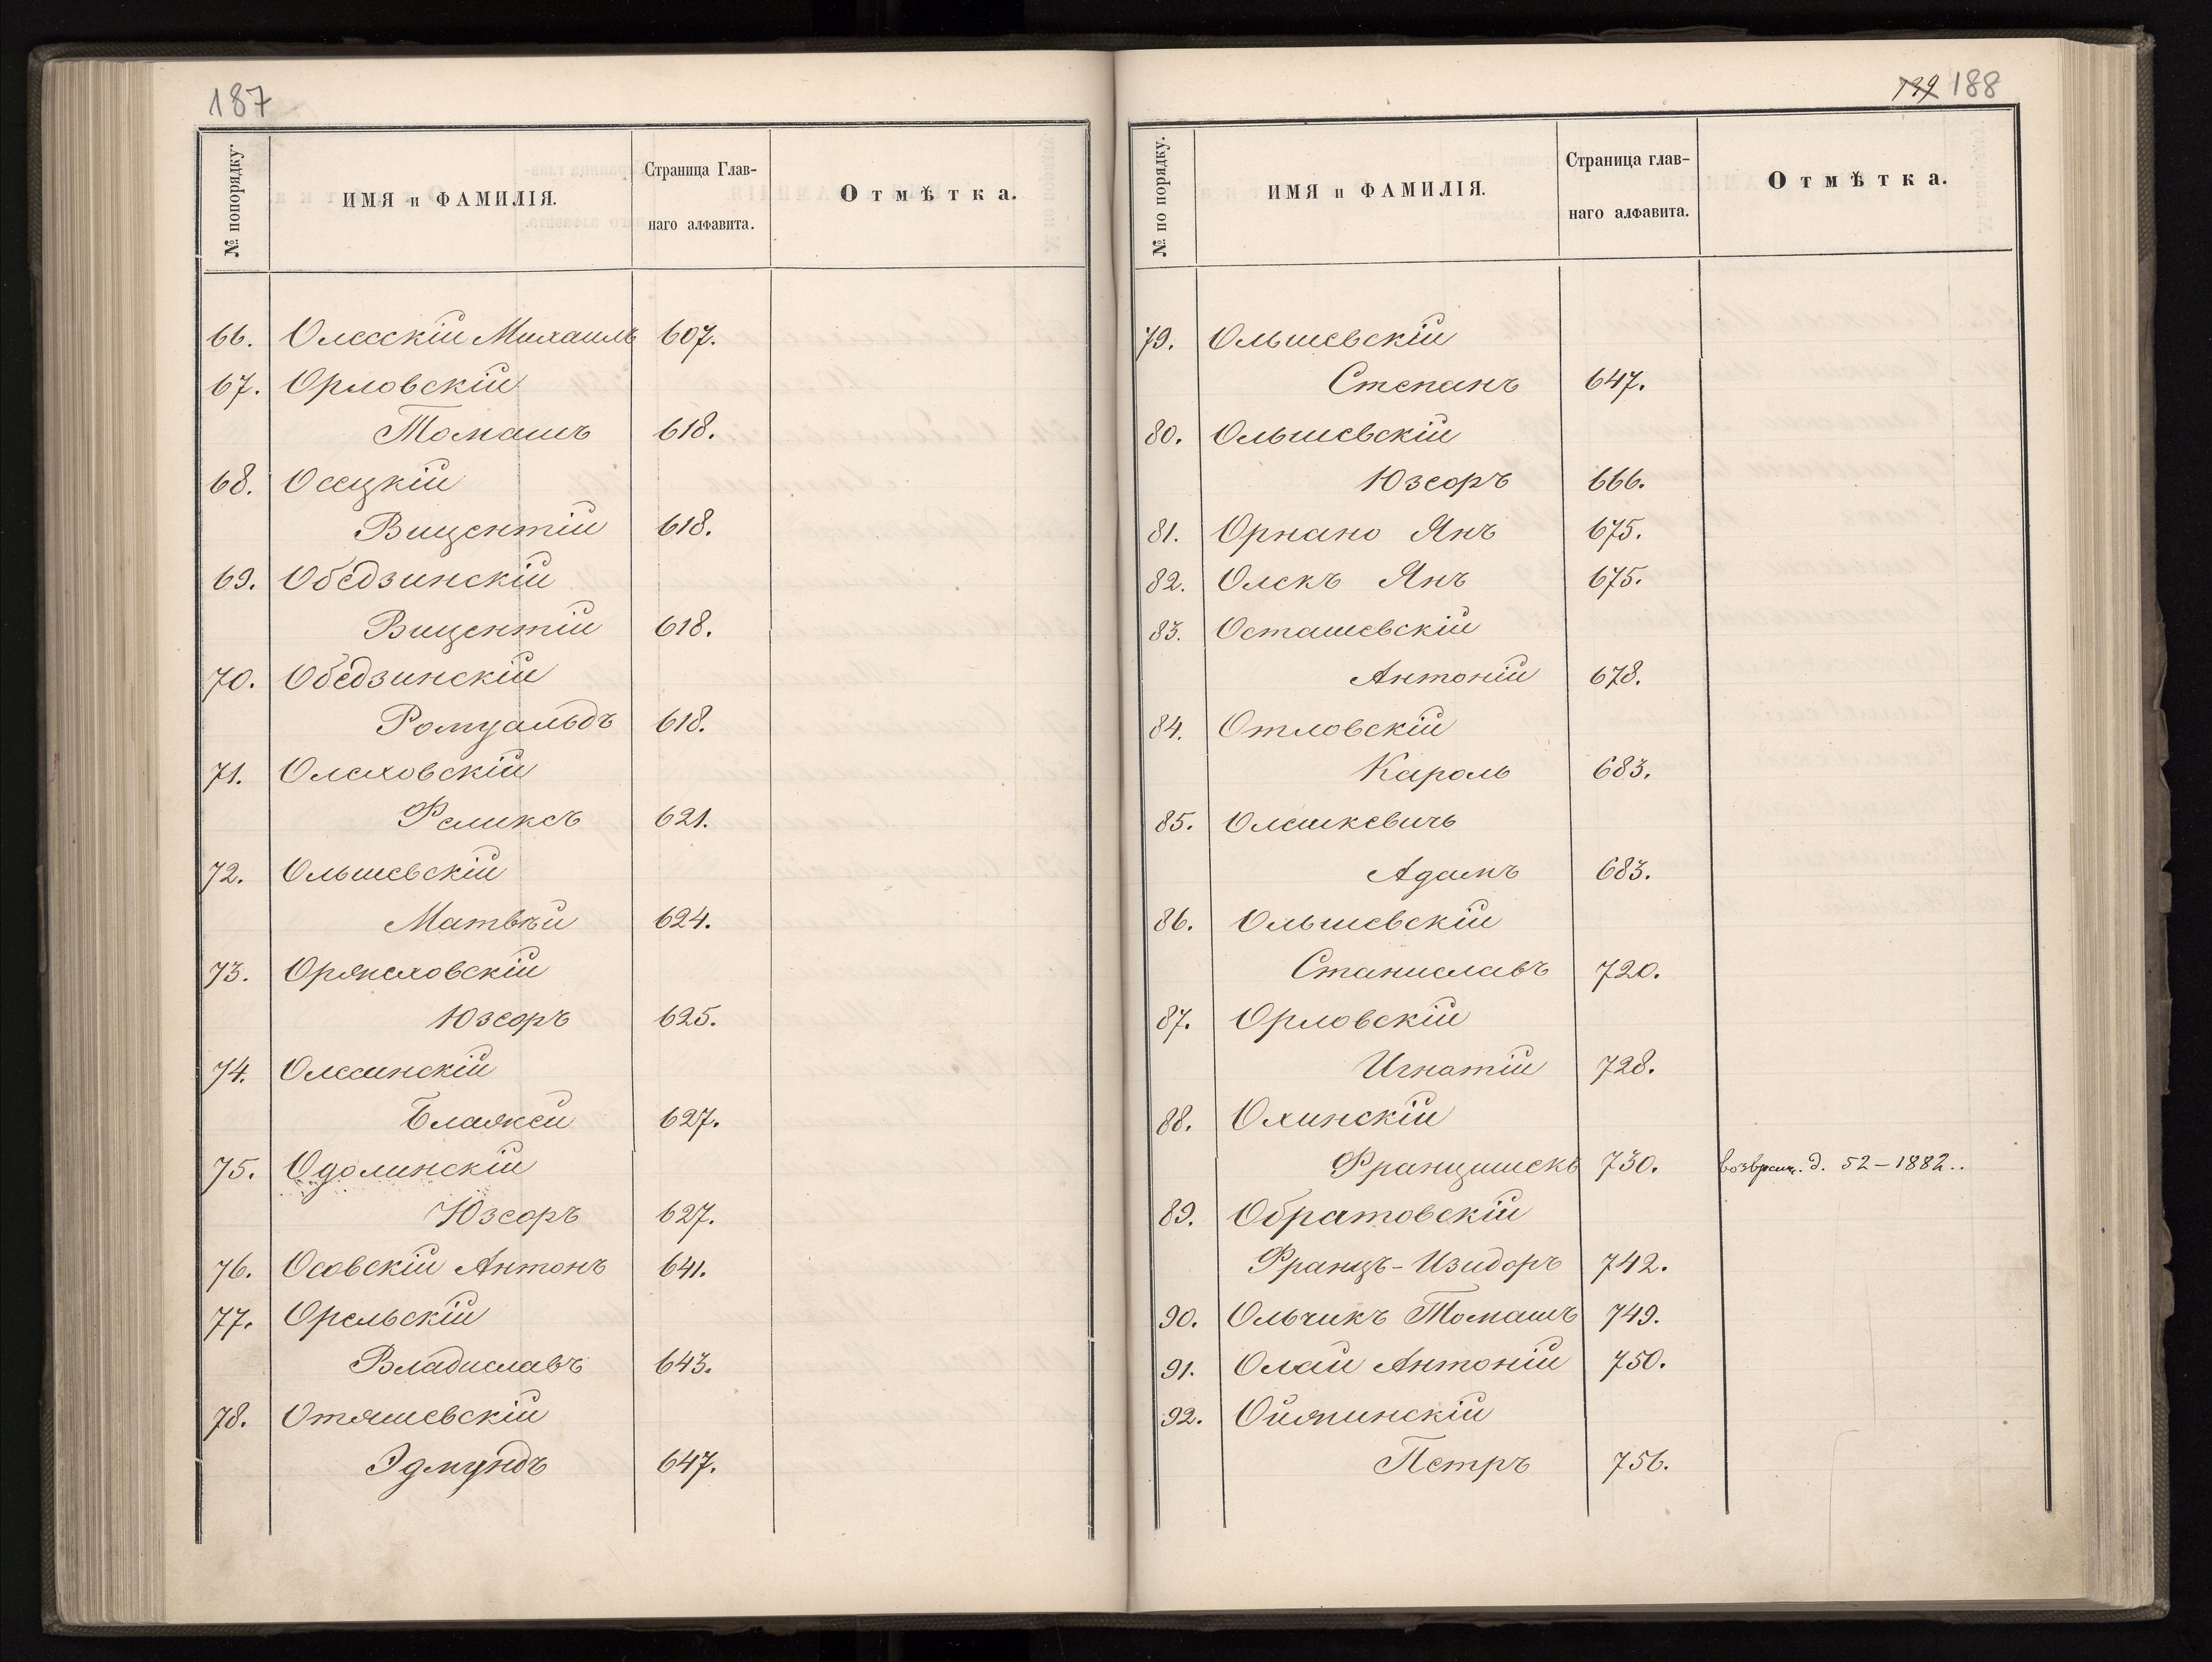 187
№ попорядку.
ИМЯ и ФАМИЛІЯ.
Страница Глав-
наго алфавита.
Отмѣтка.
66. Олесскій Михаилъ 607.
67. Орловскій
Томашъ 618.
68. Осецкій
Вицентій 618.
69. Обедзинскій
Вицентій 618.
70. Обедзинскій
Ромуальдъ 618.
71. Олеховскій
Феликсъ 621.
72. Ольшевскій
Матвѣй 624.
73. Оржеховскій
Юзефъ 625.
74. Олесинскій
Блажей 627.
75. Одолинскій
Юзефъ 627.
76. Осовскій Антонъ 641.
77. Орельскій
Владиславъ 643.
78. Отяшевскій
Эдмундъ 647.
199 188
№ по порядку.
ИМЯ и ФАМИЛІЯ.
Страница глав-
наго алфавита.
Отмѣтка.
79. Ольшевскій
Степанъ 647.
80. Ольшевскій
Юзефъ 666.
81. Орнано Янъ 675.
82. Олекъ Янъ 675.
83. Осташевскій
Антоній 678.
84. Отловскій
Кароль 683.
85. Олешкевичъ
Адамъ 683.
86. Ольшевскій
Станиславъ 720.
87. Орловскій
Игнатій 728.
88. Охинскій
Францишекъ 730. возвращ. д. 52-1882..
89. Обратовскій
Францъ-Изидоръ 742.
90. Ольчикъ Томашъ 749.
91. Олай Антоній 750.
92.
Петръ 756.